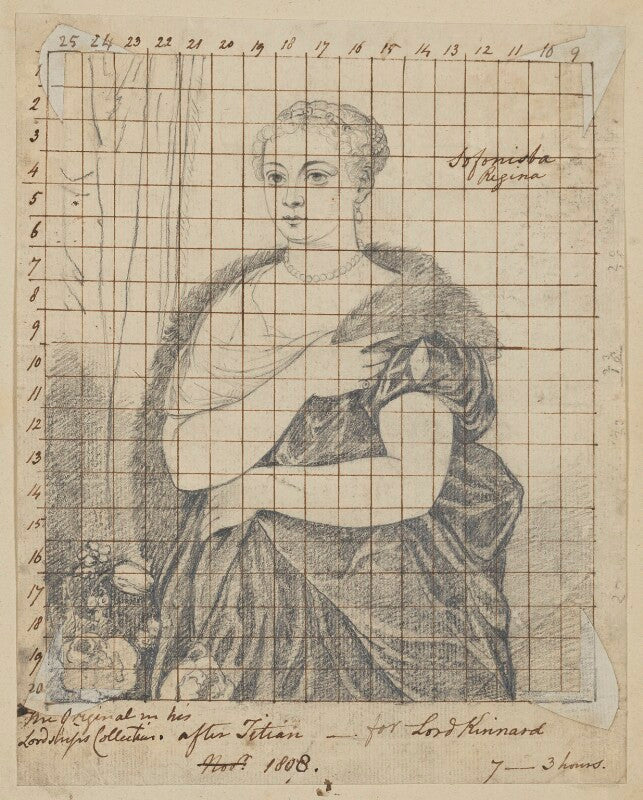 25 24 23 22 21 20 19 18 17 16 15 14 13 12 11 10 9
1
2
3
4
5
6
7
8
9
10
11
12
13
14
15
16
17
18
19
20
Sofonisba
Regina
The Original in his
Lordships Collection. after Titian — for Lord Kinnard
1808.
7 — 3 hours.